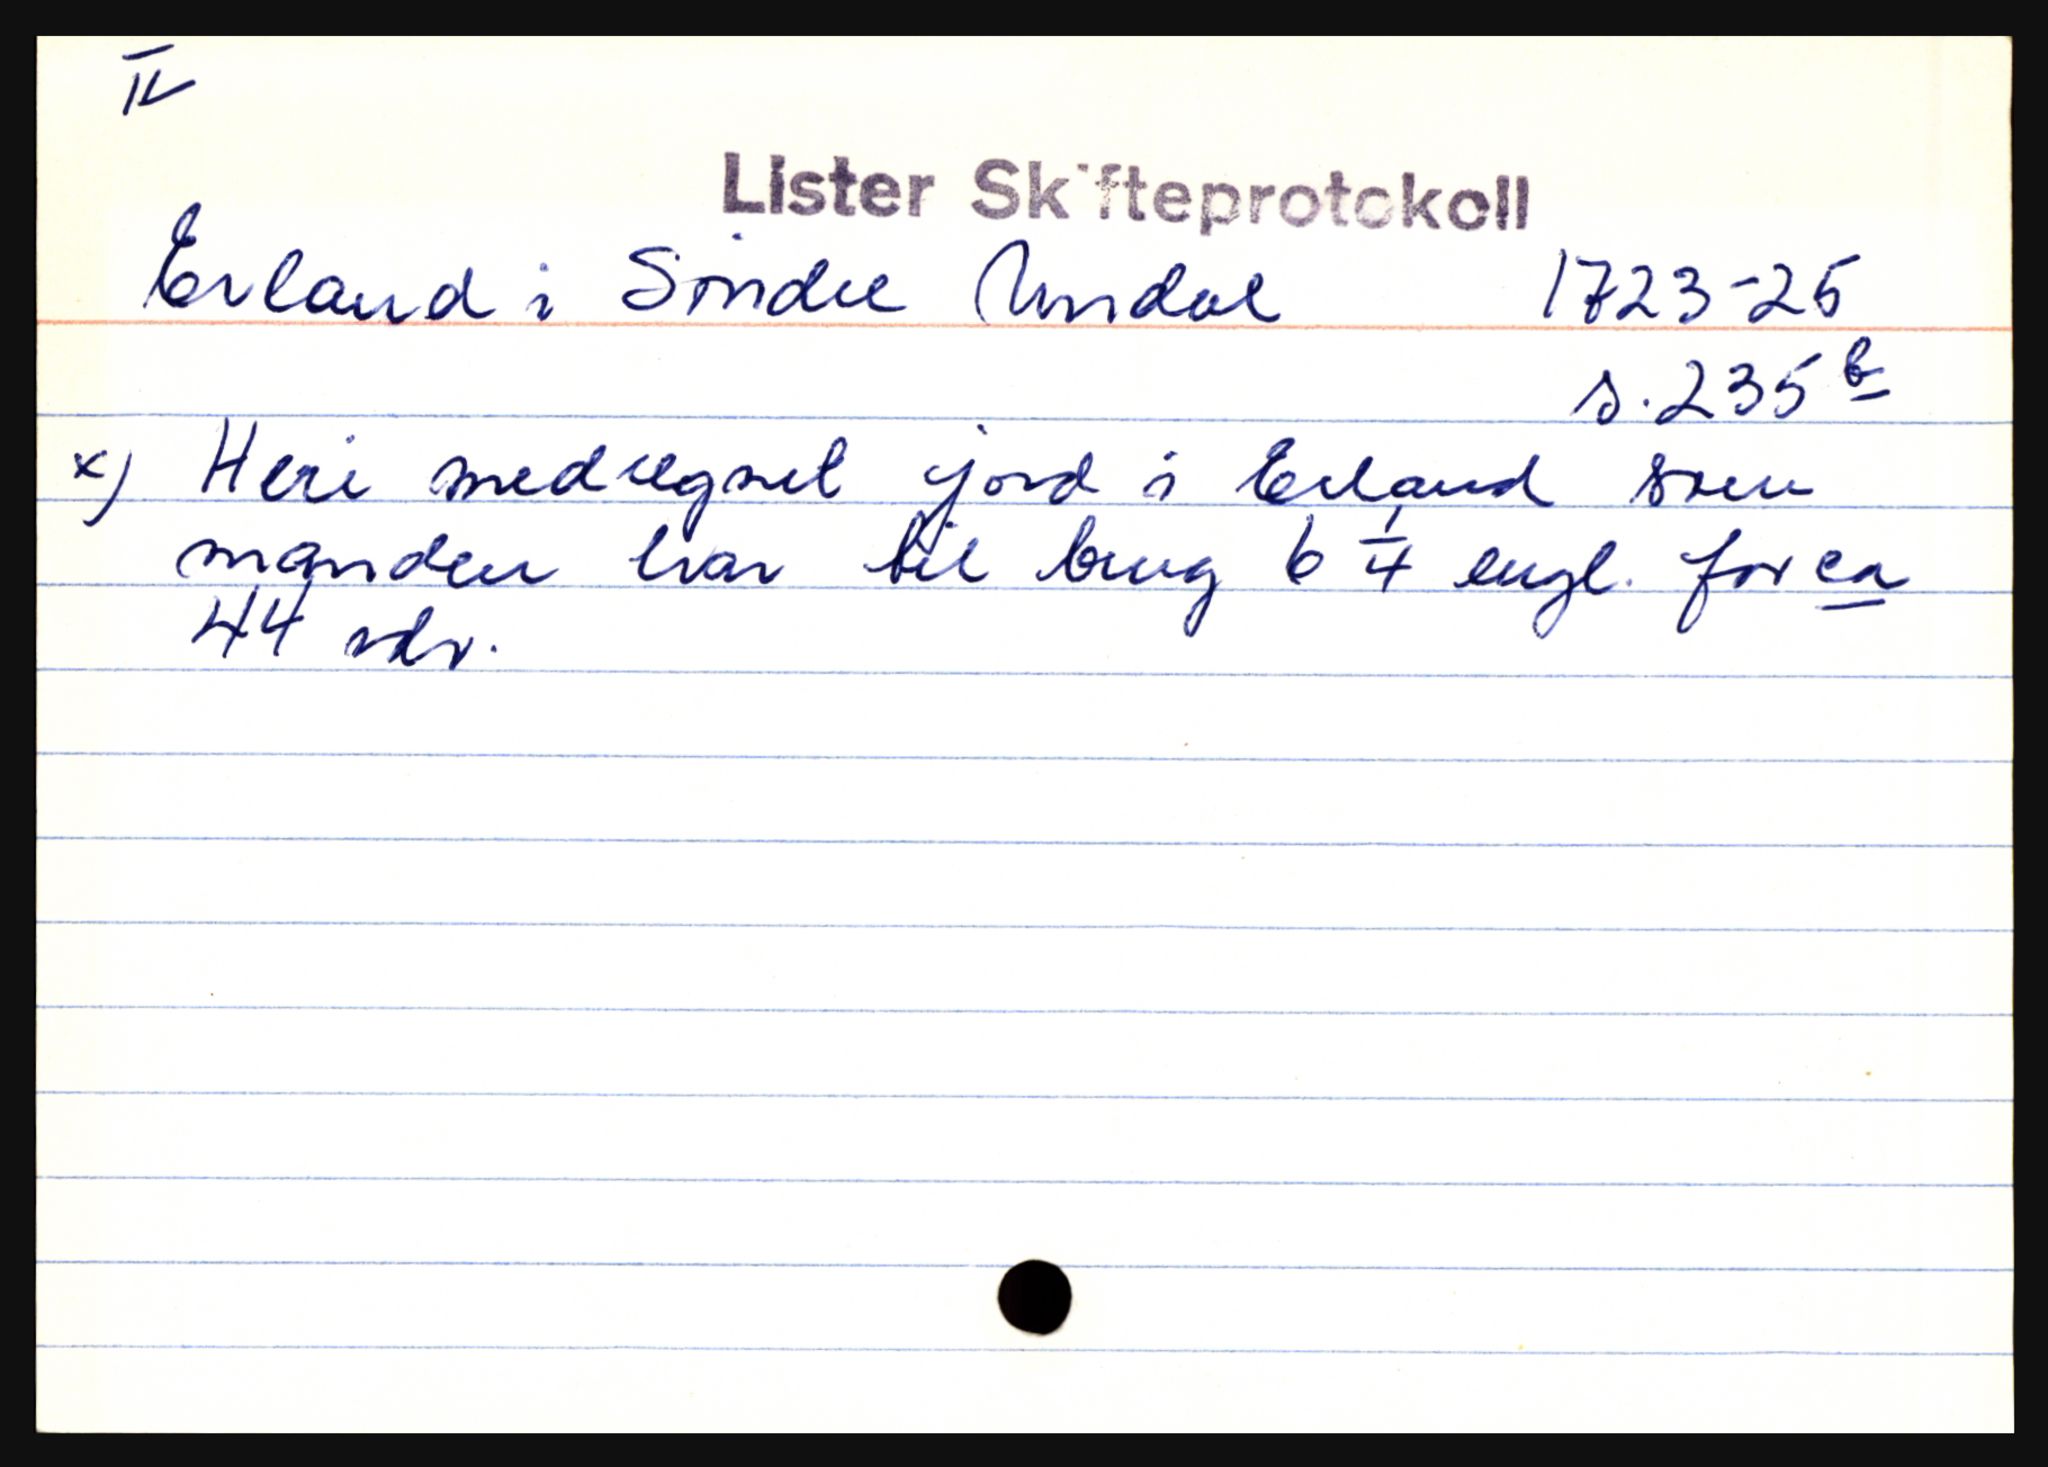 IV
Lister Skifteprotokoll
Erland i Söndre Undal 1723-25
s. 235 b
x) Heri medregnet jord i Erland som
manden har til brug 6 1/4 engl. for ca
44 rdr.